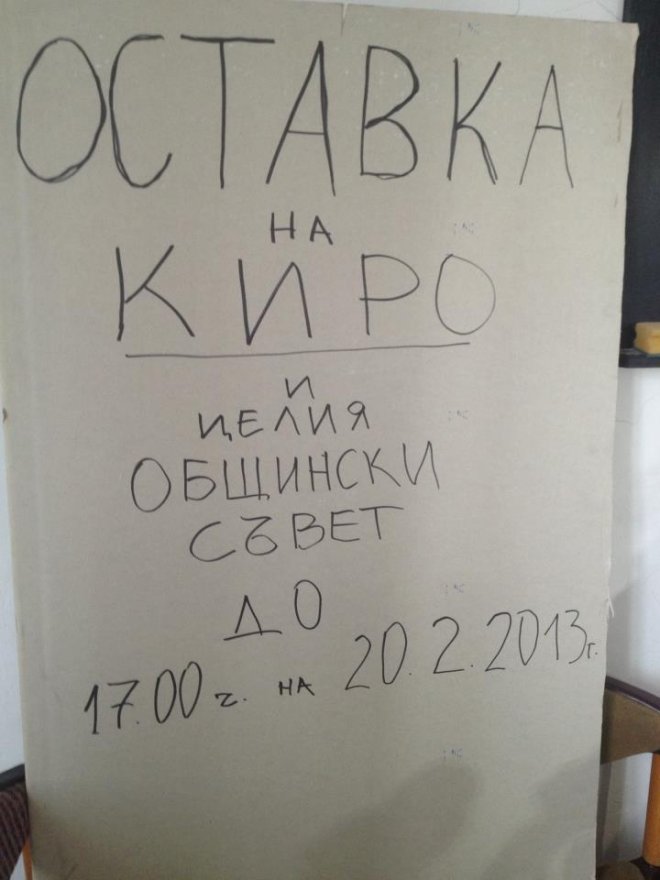 ОСТАВКА
НА
КИРО
И
ЦЕЛИЯ
ОБЩИНСКИ
СЪВЕТ
ДО
17.00 ч. НА 20.2.2013г.